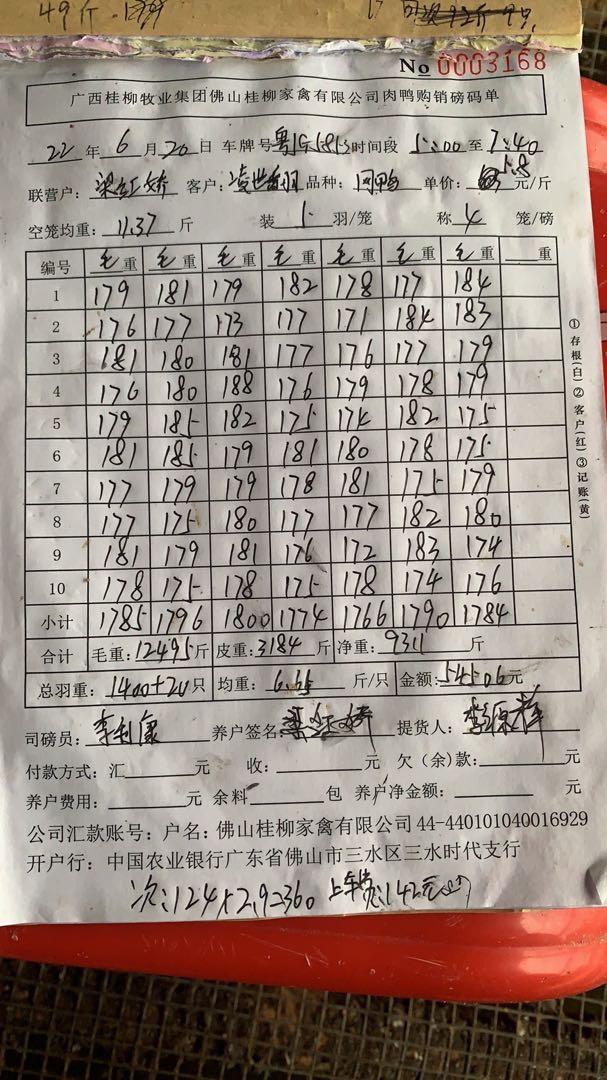 49斤
No 0003168
广西桂柳牧业集团佛山桂柳家禽有限公司肉鸭购销磅码单
22年6月20日 车牌号 时间段 5:00 至 7:40
联营户: 客户: 品种: 肉鸭 单价: 5.8 元/斤
空笼均重: 11.37 斤 装 5 羽/笼 称 4 笼/磅
编号 毛重 毛重 毛重 毛重 毛重 毛重 毛重 重
1 179 181 179 182 178 177 184
2 176 177 173 177 171 184 183
3 181 180 181 177 176 177 179
4 176 180 188 176 179 178 179
5 179 185 182 175 174 182 175
6 181 185 179 181 180 178 175
7 177 179 179 178 181 175 179
8 177 175 180 177 177 182 180
9 181 179 181 176 172 183 174
10 178 175 178 175 178 174 176
小计 1785 1796 1800 1774 1766 1790 1784
合计 毛重: 12495 斤 皮重: 3184 斤 净重: 9311 斤
总羽重: 1400+20 只 均重: 6.65 斤/只 金额: 54506 元
司磅员: 李利康 养户签名: 提货人:
付款方式: 汇 元 收: 元 欠(余)款: 元
养户费用: 元 余料 包 养户净金额: 元
公司汇款账号: 户名: 佛山桂柳家禽有限公司 44-440101040016929
开户行: 中国农业银行广东省佛山市三水区三水时代支行
次:124×2.9=360
①存根(白)②客户(红)③记账(黄)